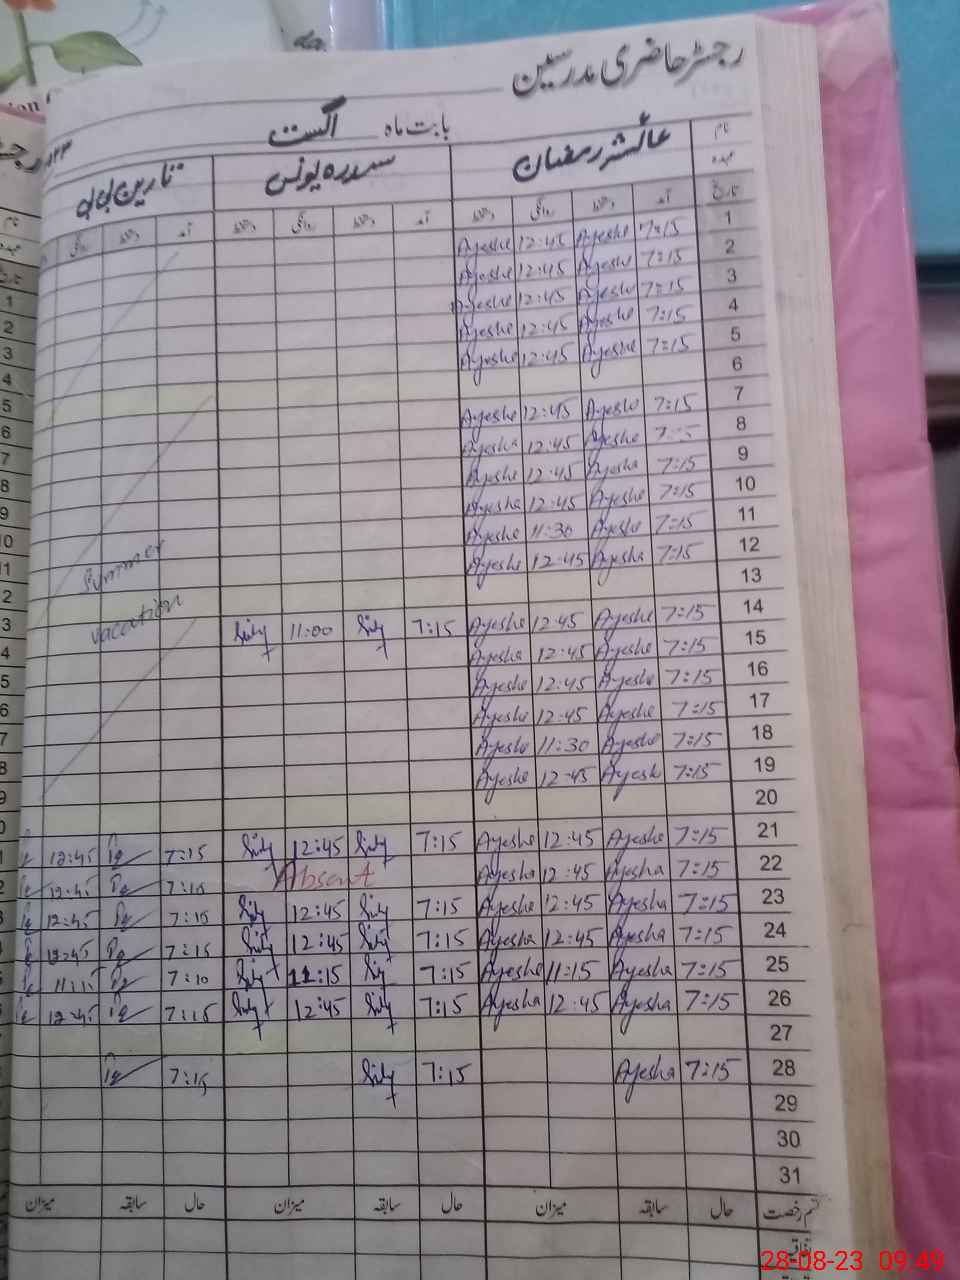 رجسٹر حاضری مدرسین
بابت ماہ اگست
نام عائشہ رمضان سدرہ یونس نازین بی بی
عہدہ
تاریخ آمد دستخط روانگی دستخط آمد دستخط روانگی دستخط آمد دستخط روانگی
1 7:15 Ayeshe 12:45 Ayeshe
2 7:15 Ayeshe 12:45 Ayeshe
3 7:15 Ayeshe 12:45 Ayeshe
4 7:15 Ayeshe 12:45 Ayeshe
5 7:15 Ayeshe 12:45 Ayeshe
6
7 7:15 Ayeshe 12:45 Ayeshe
8 7:15 Ayeshe 12:45 Ayesha
9 7:15 Ayesha 12:45 Ayeshe
10 7:15 Ayeshe 12:45 Ayesha
11 7:15 Ayeshe 11:30 Ayeshe
12 7:15 Ayesha 12:45 Ayeshe
13
Summer vacation
14 7:15 Ayeshe 12:45 Ayeshe 7:15 11:00
15 7:15 Ayeshe 12:45 Ayesha
16 7:15 Ayeshe 12:45 Ayeshe
17 7:15 Ayeshe 12:45 Ayeshe
18 7:15 Ayeshe 11:30 Ayeshe
19 7:15 Ayesh 12:45 Ayeshe
20
21 7:15 Ayeshe 12:45 Ayeshe 7:15 12:45 7:15 12:45
22 7:15 Ayesha 12:45 Ayesha Absent 7:10 12:45
23 7:15 Ayesha 12:45 Ayeshe 7:15 12:45 7:10 12:45
24 7:15 Ayesha 12:45 Ayesha 7:15 12:45 7:15 12:45
25 7:15 Ayesha 11:15 Ayeshe 7:15 11:15 7:10 11:15
26 7:15 Ayesha 12:45 Ayesha 7:15 12:45 7:15 12:45
27
28 7:15 Ayesha 7:15 7:15
29
30
31
قسم رخصت حال سابقہ میزان حال سابقہ میزان حال سابقہ میزان
28-08-23 09:49